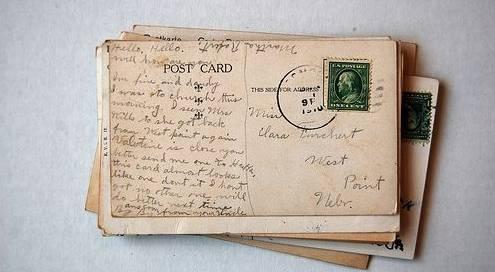 Hello, Hello.
well how are you
POST CARD
I'm fine and dandy
I was to church this
morning. I seen Mrs
Mills so she got back
from West point again
Valentine is close you
better send me one to
this card almost looks
like one dont it I hont
got no other one will
do better next time
from your
THIS SIDE FOR ADDRESS
U.S. POSTAGE
ONE CENT
1910
Miss
Clara
West
Point
Nebr.
Postkarte
Martha